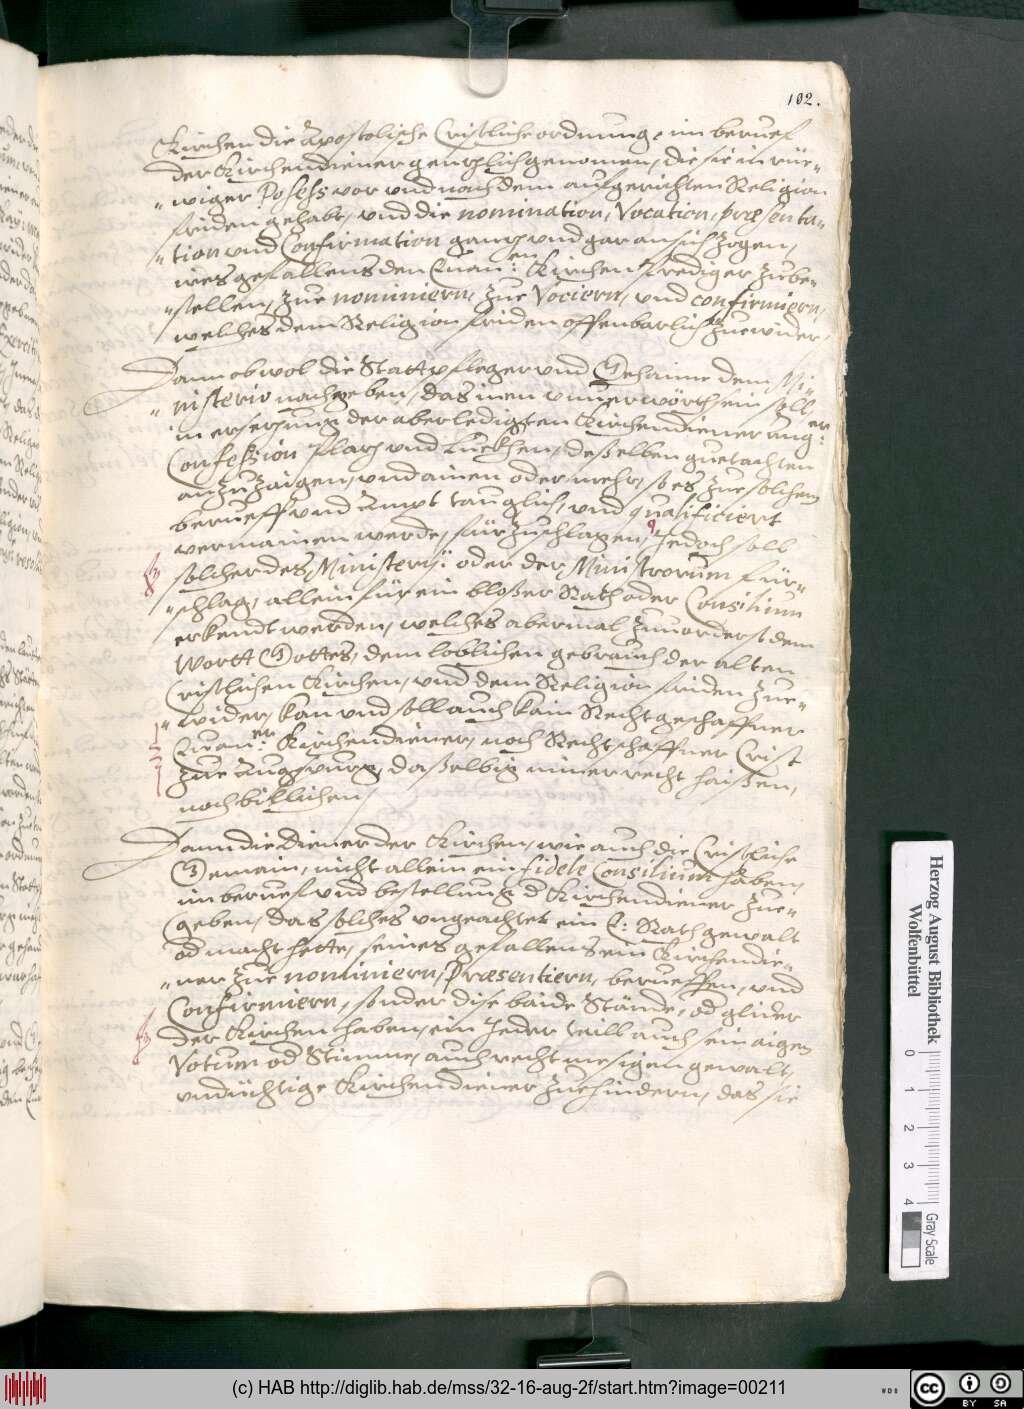 102.
Kirchen die Apostolische Cristliche ordnung, im berueff
der Kirchendiener gentzlich genomen, die sie in rüe=
=wiger Possess vor und nach dem aufgerichten Religion
friden gehabt, und die nomination, Vocation, præsenta=
=tion und Confirmation gantz und gar an sich zogen,
ires gefallens den Euan:en Kirchen Prediger zube=
=stellen, zue nominiern, zue Vociern, und confirmiern,
welches dem Religion friden offenbarlich zuewider,
Dann ob wol die Stattpfleger und Gehaime dem Mi=
=nisterio nachgeben, das inen unuerworth sein soll,
in ersetzung der aberledigten Kirchendiener Aug:er
Confession Platz und Luckhen, desselben guetachten
anzuzaigen, und ainen oder mehr, so es zue solchem
berueff und Ampt tauglich, und qualificiert
vermainen werde, fürzuschlagen, Jedoch soll
solcher des Ministerij: oder der Ministrorum für=
=schlag, allein für ein blosser Rath oder Consilium
erkendt werden, welches abermal zuuorderst dem
Wortt Gottes, dem loblichen gebrauch der alten
Cristlichen Kirchen, und dem Religion friden zue=
=wider, kan und soll auch kain Rechtgeschaffner
Euan:er Kirchendiener, noch Rechtschaffner Crist
zue Augspurg, dasselbig nimer recht haissen,
noch billichen,
Dann die Diener der Kirchen, wie auch die Cristliche
Gemain, nicht allein ein fidele Consilium haben,
im berueff und bestellung d Kirchendiener zue=
geben, das solches ungeachtet ein E: Rath gewalt
od macht hette, seines gefallens ein Kirchendie=
=ner zue nominiern, Præsentiern, berueffen, und
Confirmiern, sonder dise baide Stände, od glider
der Kirchen haben, ein Jeder teill auch sein aigen
Votum od Stimme, auch rechtmesigen gewalt,
undüchtige Kirchendiener zuehindern, das sie
Herzog August Bibliothek
Wolfenbüttel
0 1 2 3 4
Gray Scale
(c) HAB http://diglib.hab.de/mss/32-16-aug-2f/start.htm?image=00211
WDB
CC BY SA